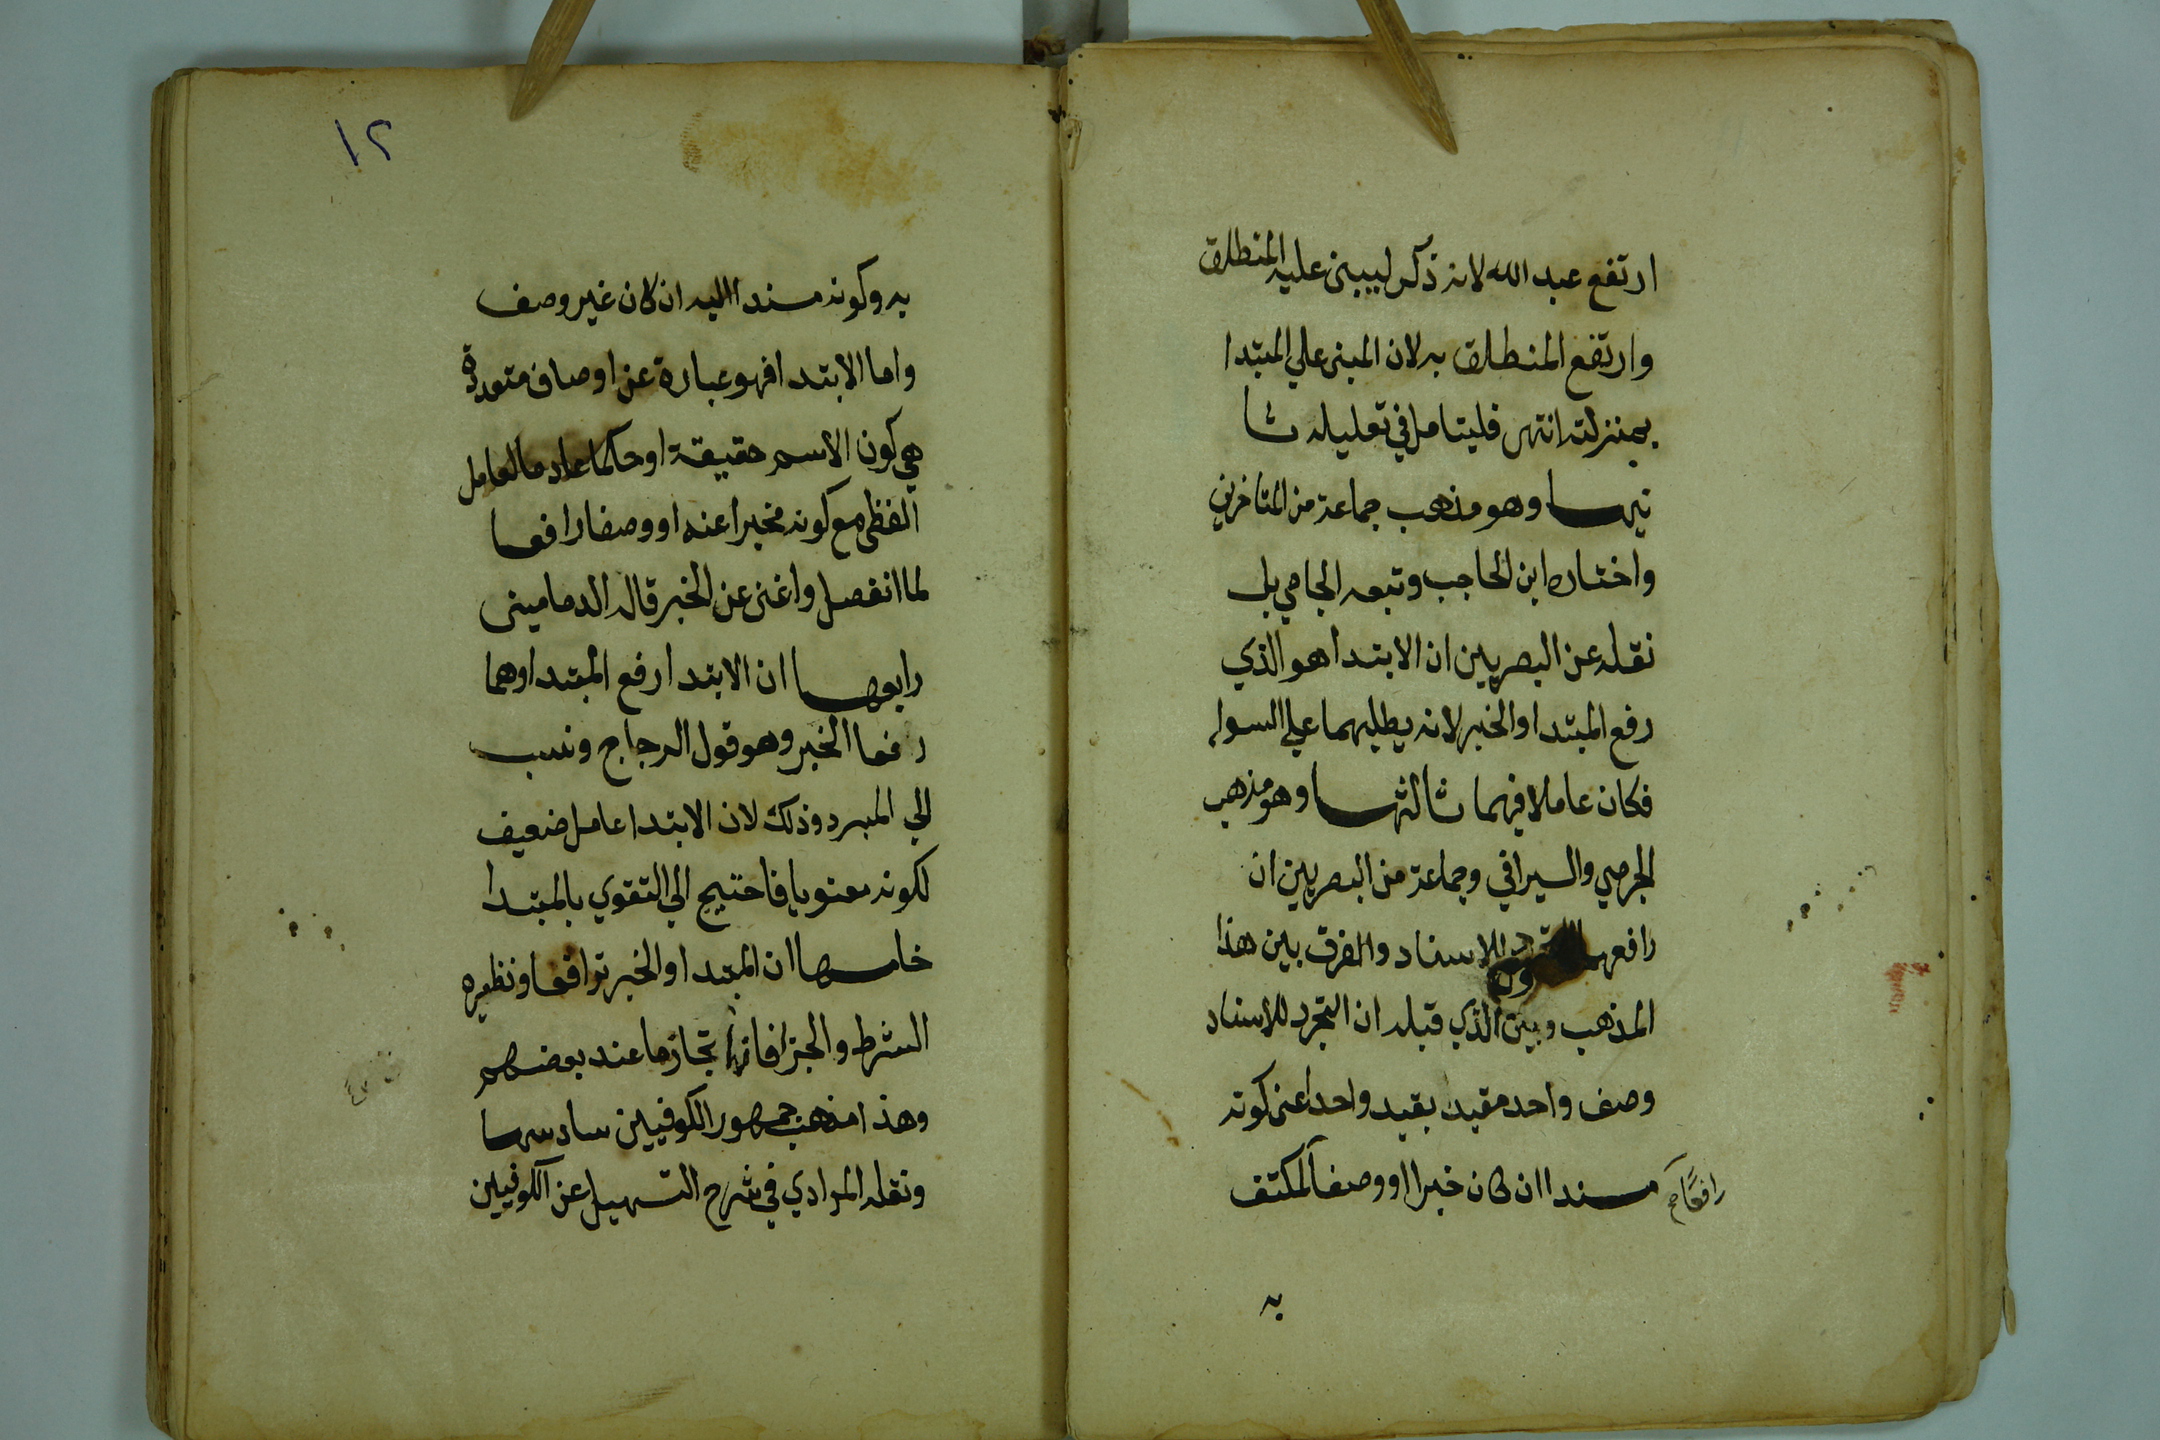 ارتفع عبد الله لانه ذكر ليبنى عليه المنطلق
وارتفع المنطلق به لان المبنى علي المبتدا
بمنزلته انتهى فليتامل في تعليله ثا
نيها وهو مذهب جماعة من المتاخرين
واختاره ابن الحاجب وتبعه الجامي بل
نقله عن البصريين ان الابتدا هو الذي
رفع المبتدا والخبر لانه يطلبهما علي السواء
فكان عاملا فيهما ثالثها وهو مذهب
الجرمي والسيرافي وجماعة من البصريين ان
رافعهما للاسناد والفرق بين هذا
المذهب وبين الذي قبله ان التجرد للاسناد
وصف واحد مقيد بقيد واحد اعنى كونه
مسندا ان كان خبرا او وصفا لمكتف
رافعًا صح
به
١٢
به وكونه مسندا اليه ان كان غير وصف
واما الابتدا فهو عبارة عن اوصاف متعددة
هي كون الاسم حقيقة او حكما عادما لعامل
الفظي مع كونه مخبرا عنه او وصفا رافعا
لما انفصل واغنى عن الخبر قاله الدمامينى
رابعها ان الابتدا رفع المبتدا وهما
رفعا الخبر وهو قول الزجاج ونسب
الي المبرد وذلك لان الابتدا عامل ضعيف
لكونه معنويا فاحتيج الي التقوي بالمبتدا
خامسها ان المبتدا والخبر ترافعا ونظيره
الشرط والجزا فانهما تجازما عند بعضهم
وهذا مذهب جمهور الكوفيين سادسها
ونقله المرادي في شرح التسهيل عن الكوفيين